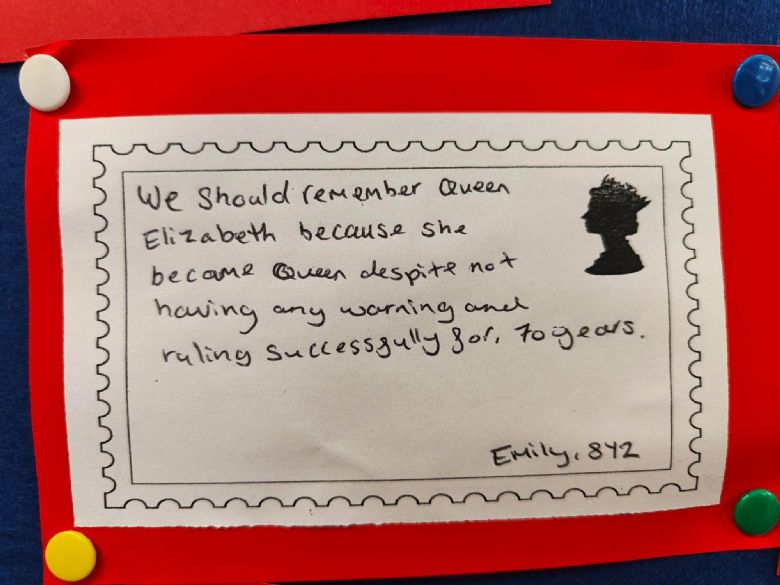 We should remember Queen
Elizabeth because she
became Queen despite not
having any warning and
ruling successfully for, 70 years.
Emily, 8Y2